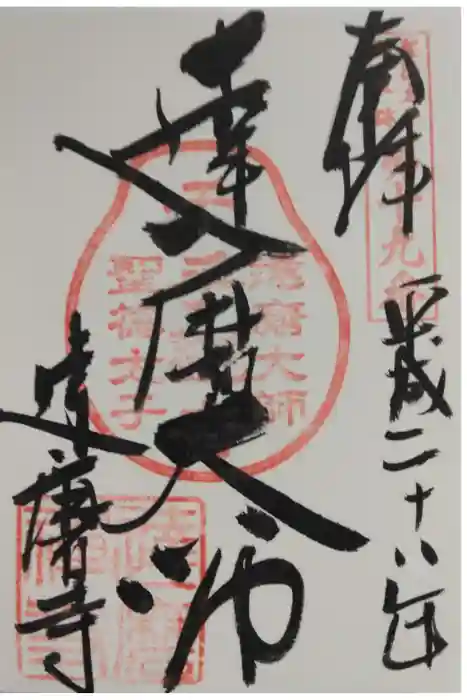 奉拝
平成二十八年
達磨大師
達磨寺
達磨大師
聖徳太子